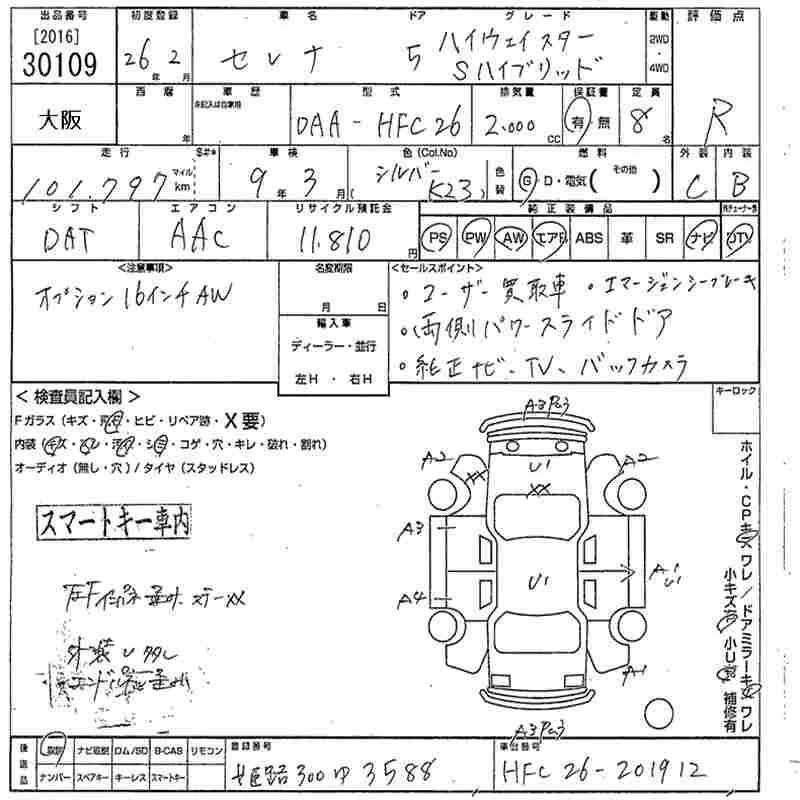 出品番号 初度登録 車名 ドア グレード 駆動 評価点
[2016]
30109
26年 2月 セレナ 5 ハイウェイスター
Sハイブリッド
2WD
・
4WD
R
大阪
西暦 車歴 型式 排気量 保証書 定員
年 未記入は自家用 DAA-HFC26 2.000 CC 有・無 8名
走行 車検 色(Col.No) 燃料 外装 内装
101.797 マイル km 9年3月 シルバー
(K23) 色替 G・D・電気( その他 ) C B
シフト エアコン リサイクル預託金 純正装備品
DAT AAC 11.810円 PS PW AW エアB ABS 革 SR ナビ
<注意事項> 名変期限 <セールスポイント>
オプション16インチAW
月 日
輸入車
ディーラー・並行
左H ・ 右H
・ユーザー買取車 ・エマージェンシーブレーキ
・両側パワースライドドア
・純正ナビ、TV、バックカメラ
キーロック
<検査員記入欄>
Fガラス(キズ・飛石・ヒビ・リペア跡・X要)
内装(キズ・スレ・汚れ・シミ・コゲ・穴・キレ・破れ・割れ)
オーディオ(無し・穴)/タイヤ(スタッドレス)
スマートキー車内
A2 U1 A2
XX XX
A3
U1 A1
U1
A4
A1
ホイル・CPキズワレ/ドアミラーキズワレ
小キズ 小U 補修有
後送品 取説 ナビ取説 ロム/SD B-CAS リモコン
ナンバー スペアキー キーレス スマートキー
登録番号 車台番号
姫路300ゆ3588 HFC26-201912